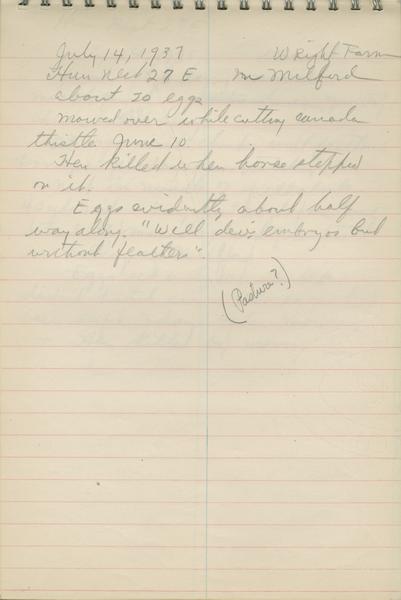 July 14, 1937 Wright Farm
Hun nest 27 E in Milford
about 20 eggs
mowed over while cutting canada
thistle June 10
Hen killed when horse stepped
on it.
Eggs evidently about half
way along. "Well dev. embryos but
without feathers".
(Pasture?)